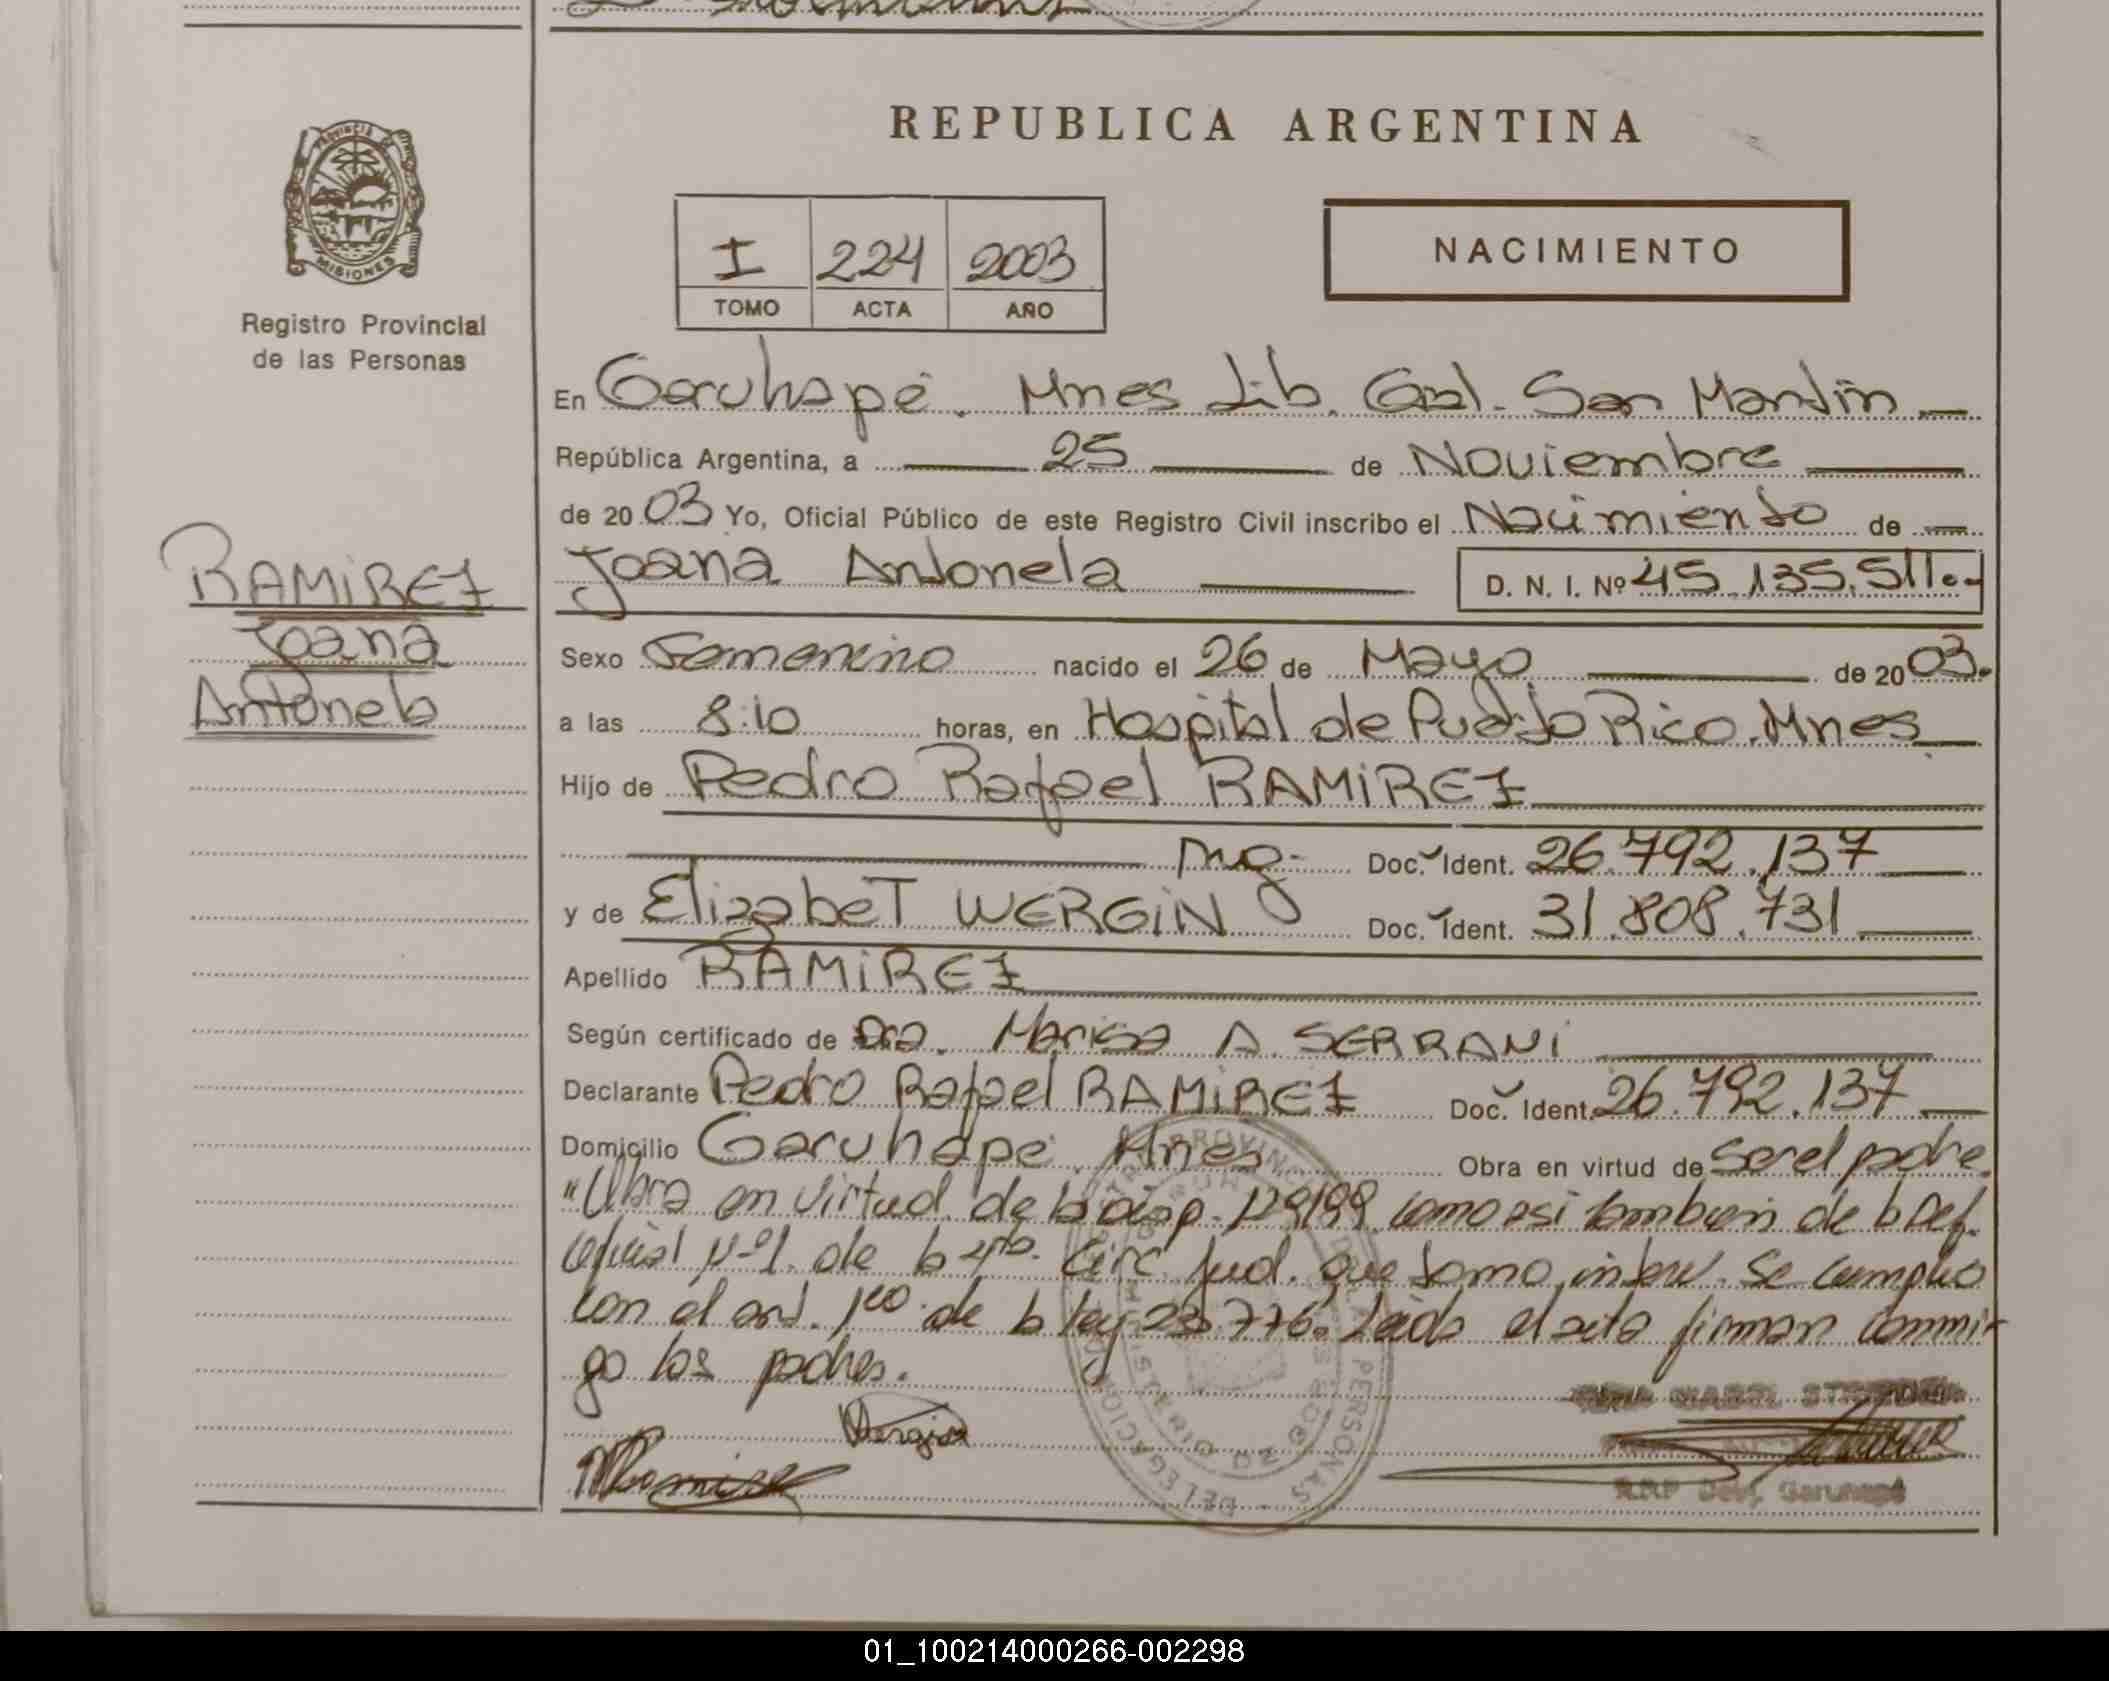 PROVINCIA
MISIONES
Registro Provincial
de las Personas
RAMIREZ
Joana
Antonela
REPUBLICA ARGENTINA
I 224 2003
TOMO ACTA AÑO
NACIMIENTO
En Garuhapé. Mnes Lib. Gral. San Martín
República Argentina, a 25 de Noviembre
de 2003 Yo, Oficial Público de este Registro Civil inscribo el Nacimiento de
Joana Antonela D. N. I. Nº 45.135.511.-
Sexo Femenino nacido el 26 de Mayo de 2003.
a las 8:10 horas, en Hospital de Puerto Rico. Mnes
Hijo de Pedro Rafael RAMIREZ
Doc. Ident. 26.792.137
y de Elizabet WERGIN Doc. Ident. 31.808.731
Apellido RAMIREZ
Según certificado de Dra. Marisa A. SERRANI
Declarante Pedro Rafael RAMIREZ Doc. Ident. 26.792.137
Domicilio Garuhapé. Mnes Obra en virtud de ser el padre.
"Obra en virtud de la disp. 129/99 como asi tambien de la Def.
oficial Nº 1. de la 4ta. Circ. Jud. que tomo interv. Se cumplio
con el art. 1ro. de la ley 23.776. Leida el acta firman conmi-
go los padres.
Wergin
Ramirez
R.P.P. Deleg. Garuhapé
01_100214000266-002298